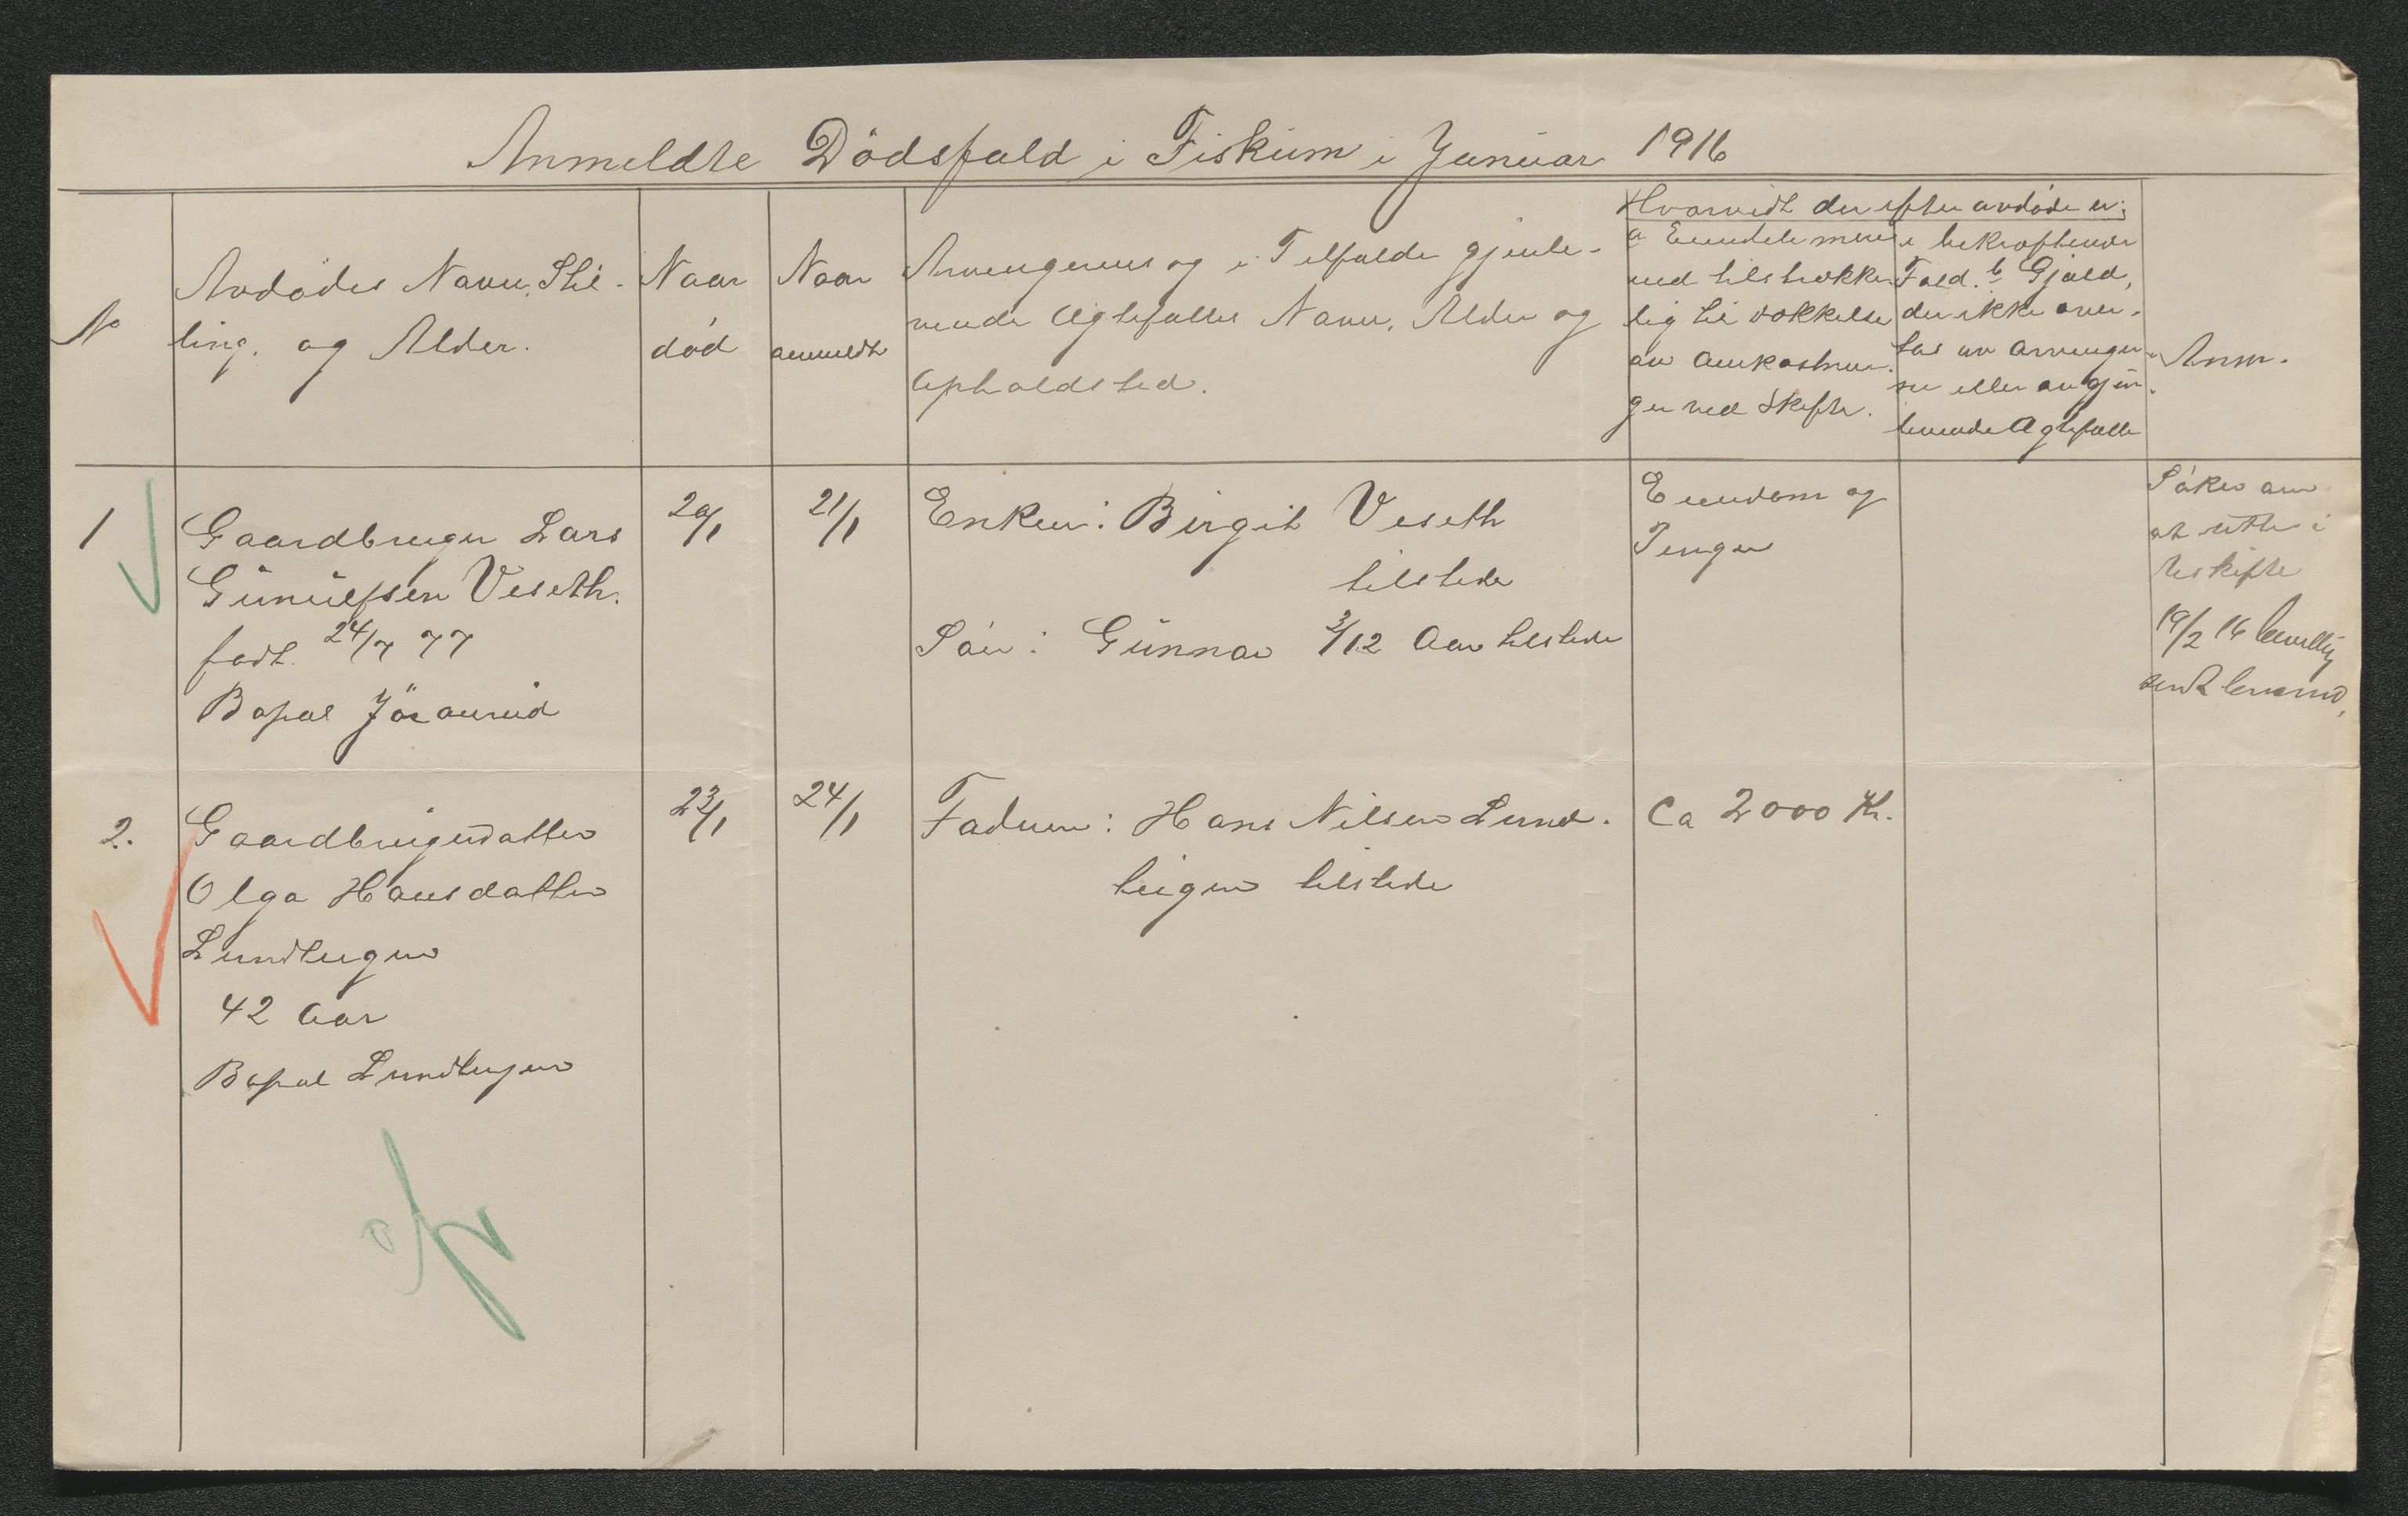 Anmeldte Dödsfald i Fiskum i Januar 1916
No
Avdödes Navn, Stil-
ling, og Alder.
Naar
död
Naar
anmeldt
Arvingernes og i Tilfælde gjenle-
vende Ægtefælles Navn, Alder og
Opholdsted.
Hvorvidt der efter avdöde er:
a Eiendele mere
end tilstrække
lig til dækkelse
av Omkostnin-
ger ved Skifte.
i bekræftende
Fald. b Gjæld,
der ikke over-
tas av Arvinger-
ne eller av gjen-
levende Ægtefælle
Anm.
1
Gaardbruger Lars
Gunulfsen Veseth.
födt 24/7 77
Bopæl
20/1
21/1
Enken: Birgit Veseth
tilstede
Sön: Gunnar 3/12 Aar tilstede
Eiendom og
Penger
Sökes om
at sitte i
Uskifte
19/2 16 bevilling
sendt lensmd,
2.
Gaardbrugerdatter
Olga Hansdatter
Lundteigen
42 Aar
Bopæl Lundteigen
23/1
24/1
Faderen: Hans Nilsen Lund-
teigen tilstede
Ca 2000 Kr.